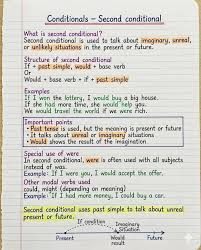 Conditionals – Second conditional
What is second conditional?
Second conditional is used to talk about imaginary, unreal,
or unlikely situations in the present or future.
Structure of second conditional
If + past simple, would + base verb
Or
Would + base verb + if + past simple
Examples
If I won the lottery, I would buy a big house.
If she had more time, she would help you.
We would travel the world if we were rich.
Important points
• Past tense is used, but the meaning is present or future
• It talks about unreal or imaginary situations
• Would shows the result of the imagination
Special use of were
In second conditional, were is often used with all subjects
instead of was.
Example: If I were you, I would accept the offer.
Other modal verbs used
could, might (depending on meaning)
Example: If I had more money, I could buy a car.
Second conditional uses past simple to talk about unreal
present or future.
If condition
Imaginary
Situation
Present
Would
result
Future